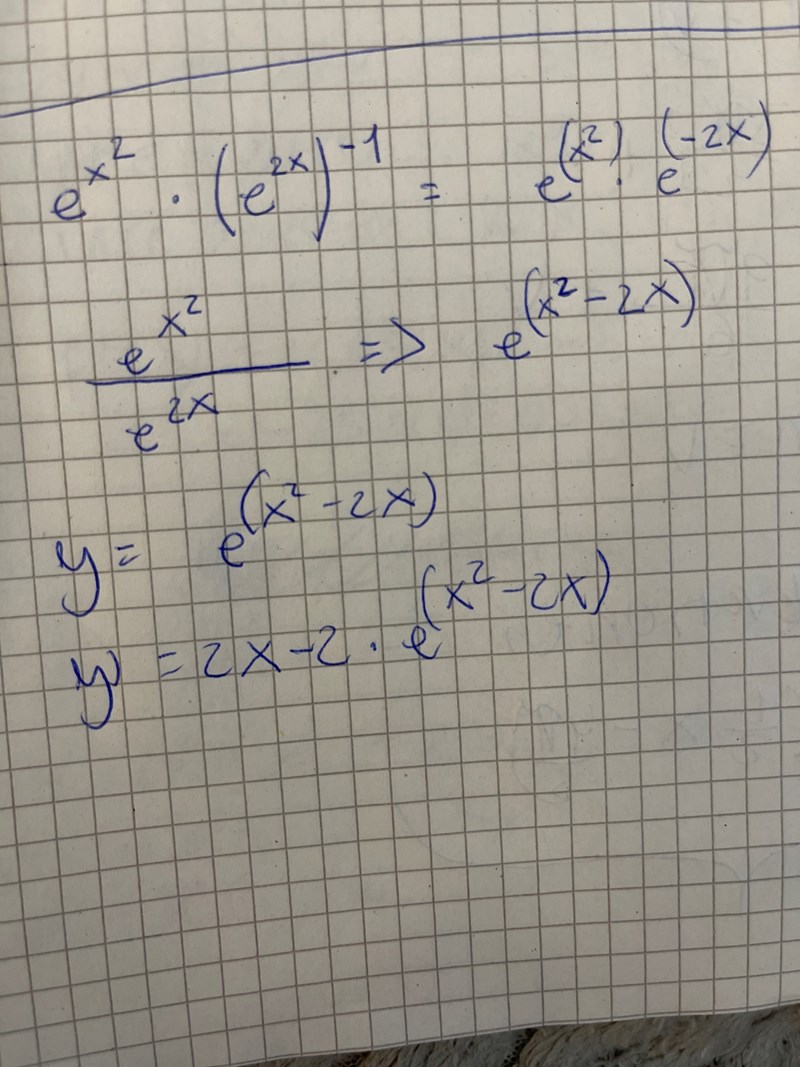 e^{x^2} · (e^{2x})^{-1} = e^{(x^2)} · e^{(-2x)}
\frac{e^{x^2}}{e^{2x}} => e^{(x^2 - 2x)}
y = e^{(x^2 - 2x)}
y' = 2x - 2 · e^{(x^2 - 2x)}